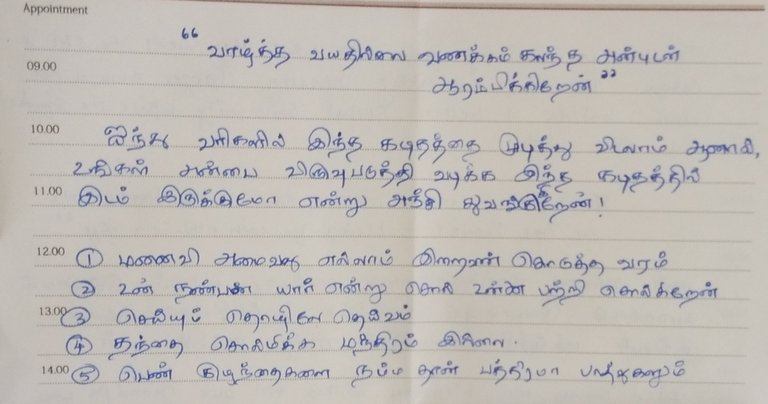 Appointment
“ வாழ்த்த வயதில்லை வணக்கம் கலந்த அன்புடன்
09.00
ஆரம்பிக்கிறேன் ”
10.00 ஐந்து வரிகளில் இந்த கடிதத்தை முடித்து விடலாம் ஆனால்,
உங்கள் அன்பை விரிவுபடுத்தி வடிக்க இந்த கடிதத்தில்
11.00 இடம் இருக்குமோ என்று அஞ்சி துவங்கிறேன்!
12.00 ① மனைவி அமைவது எல்லாம் இறைவன் கொடுத்த வரம்
② உன் நண்பன் யார் என்று சொல் உன்னை பற்றி சொல்கிறேன்
13.00 ③ செய்யும் தொழிலே தெய்வம்
④ தந்தை சொல்மிக்க மந்திரம் இல்லை.
14.00 ⑤ பெண் குழந்தைகளை நம்ம தான் பத்திரமா